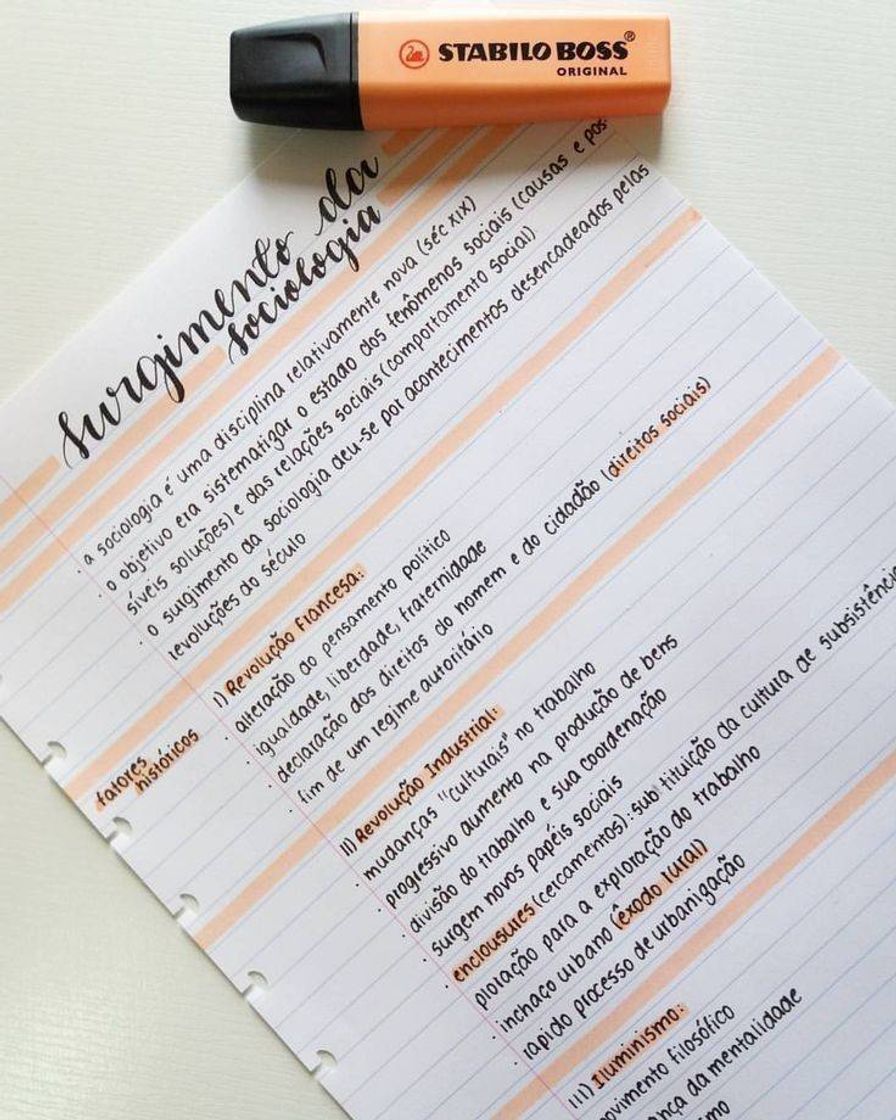 STABILO BOSS®
ORIGINAL
surgimento da
sociologia
· a sociologia é uma disciplina relativamente nova (séc XIX)
· o objetivo era sistematizar o estado dos fenômenos sociais (causas e pos-
síveis soluções) e das relações sociais (comportamento social)
· o surgimento da sociologia deu-se por acontecimentos desencadeados pelas
revoluções do século
fatores
históricos
I) Revolução Francesa:
· alteração do pensamento político
· igualdade, liberdade, fraternidade
· declaração dos direitos do homem e do cidadão (direitos sociais)
· fim de um regime autoritário
II) Revolução Industrial:
· mudanças "culturais" no trabalho
· progressivo aumento na produção de bens
· divisão do trabalho e sua coordenação
· surgem novos papéis sociais
· enclousures (cercamentos): substituição da cultura de subsistência
ploração para a exploração do trabalho
· inchaço urbano (êxodo rural)
· rapido processo de urbanização
III) Iluminismo:
movimento filosófico
ança da mentalidade
smo